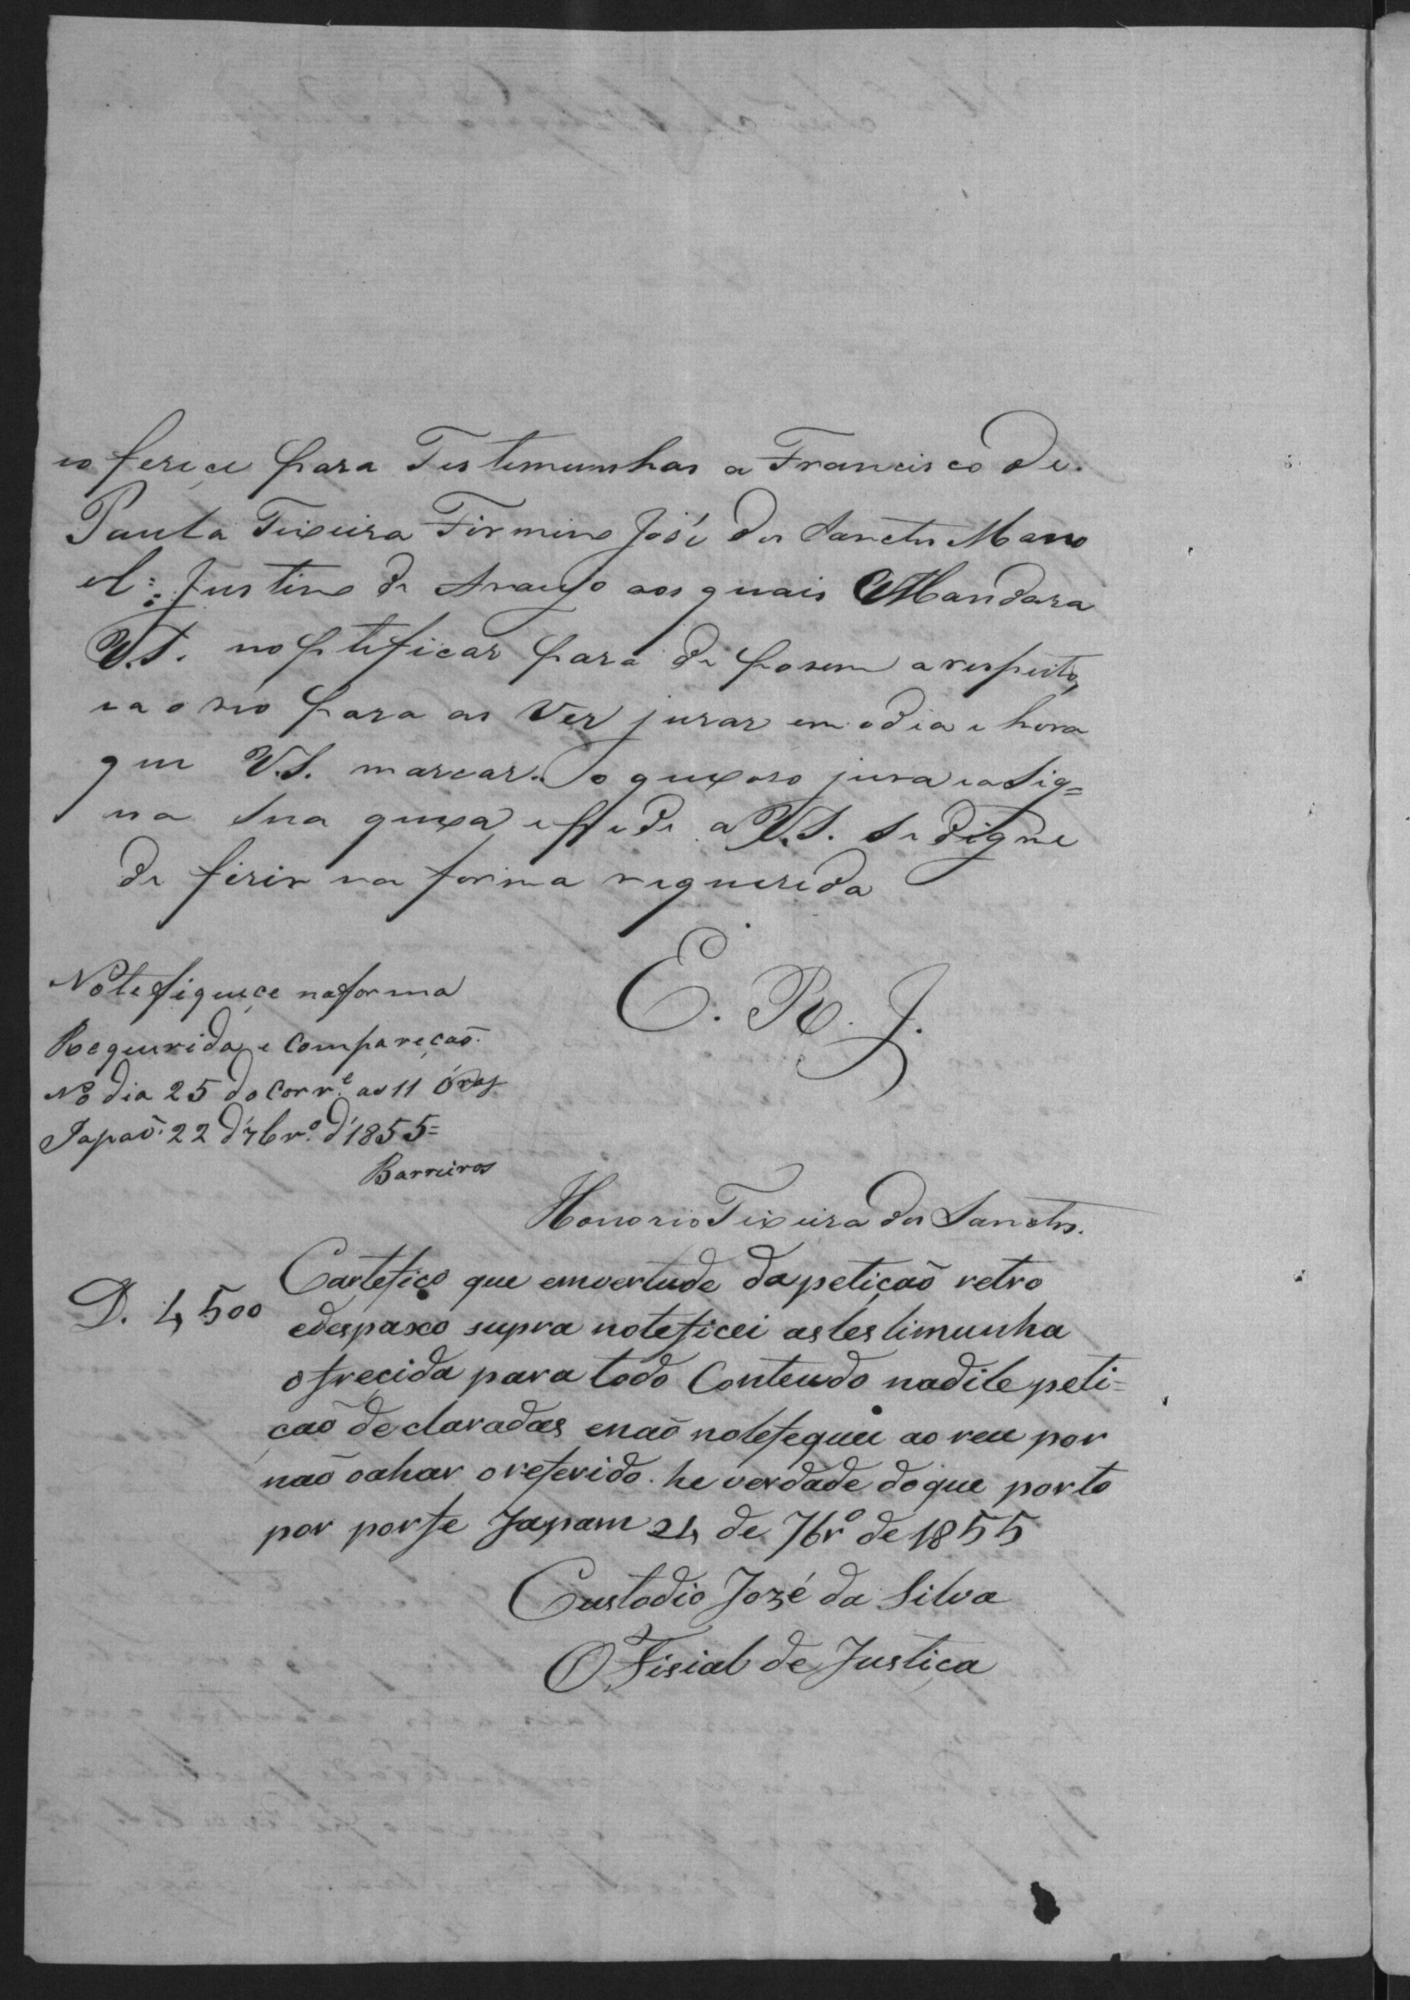 eo fereçe para Testemunhas a Francisco de
Paula Teixeira Firmino José dos Sanctos Mano
el: Justino de Araujo aos quais Mandara
V.S. noptificar para de posem a respeito,
e a o reo para as Ver jurar em o dia e hora
que V.S. marcar. o queixoso jura e asig=
na sua queixa e pede a V.S. se digne
de firir na forma requerida
E. R. J.
Notefiqueçe na forma
Requerida, e Compareção
No dia 25 do Corr.e as 11 Óras
Japaõ 22 d'7br.o d'1855=
Barreiros
Honorio Teixeira dos Sanctos.
Cartefico que emvertude da petiçaõ retro
D. 4500
edespaxo supra noteficei astestimunha
ofreçida para todo Conteudo nadite peti=
çaõ declaradas enaõ notefequei ao reu por
naõ oahar oreferido. he verdade doque porto
por porfe Japam 24 de 7br.o de 1855
Custodio Jozé da Silva
OFisial de Justiça